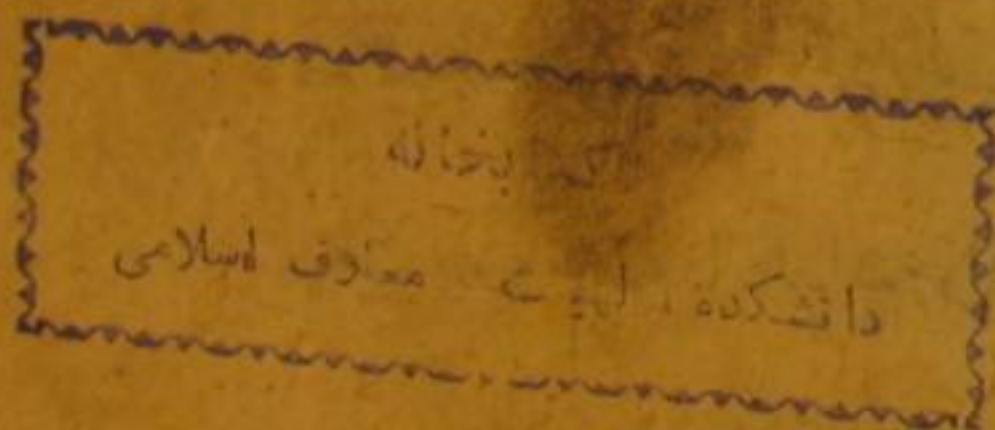 کتابخانه
دانشکده الهیات معارف اسلامی